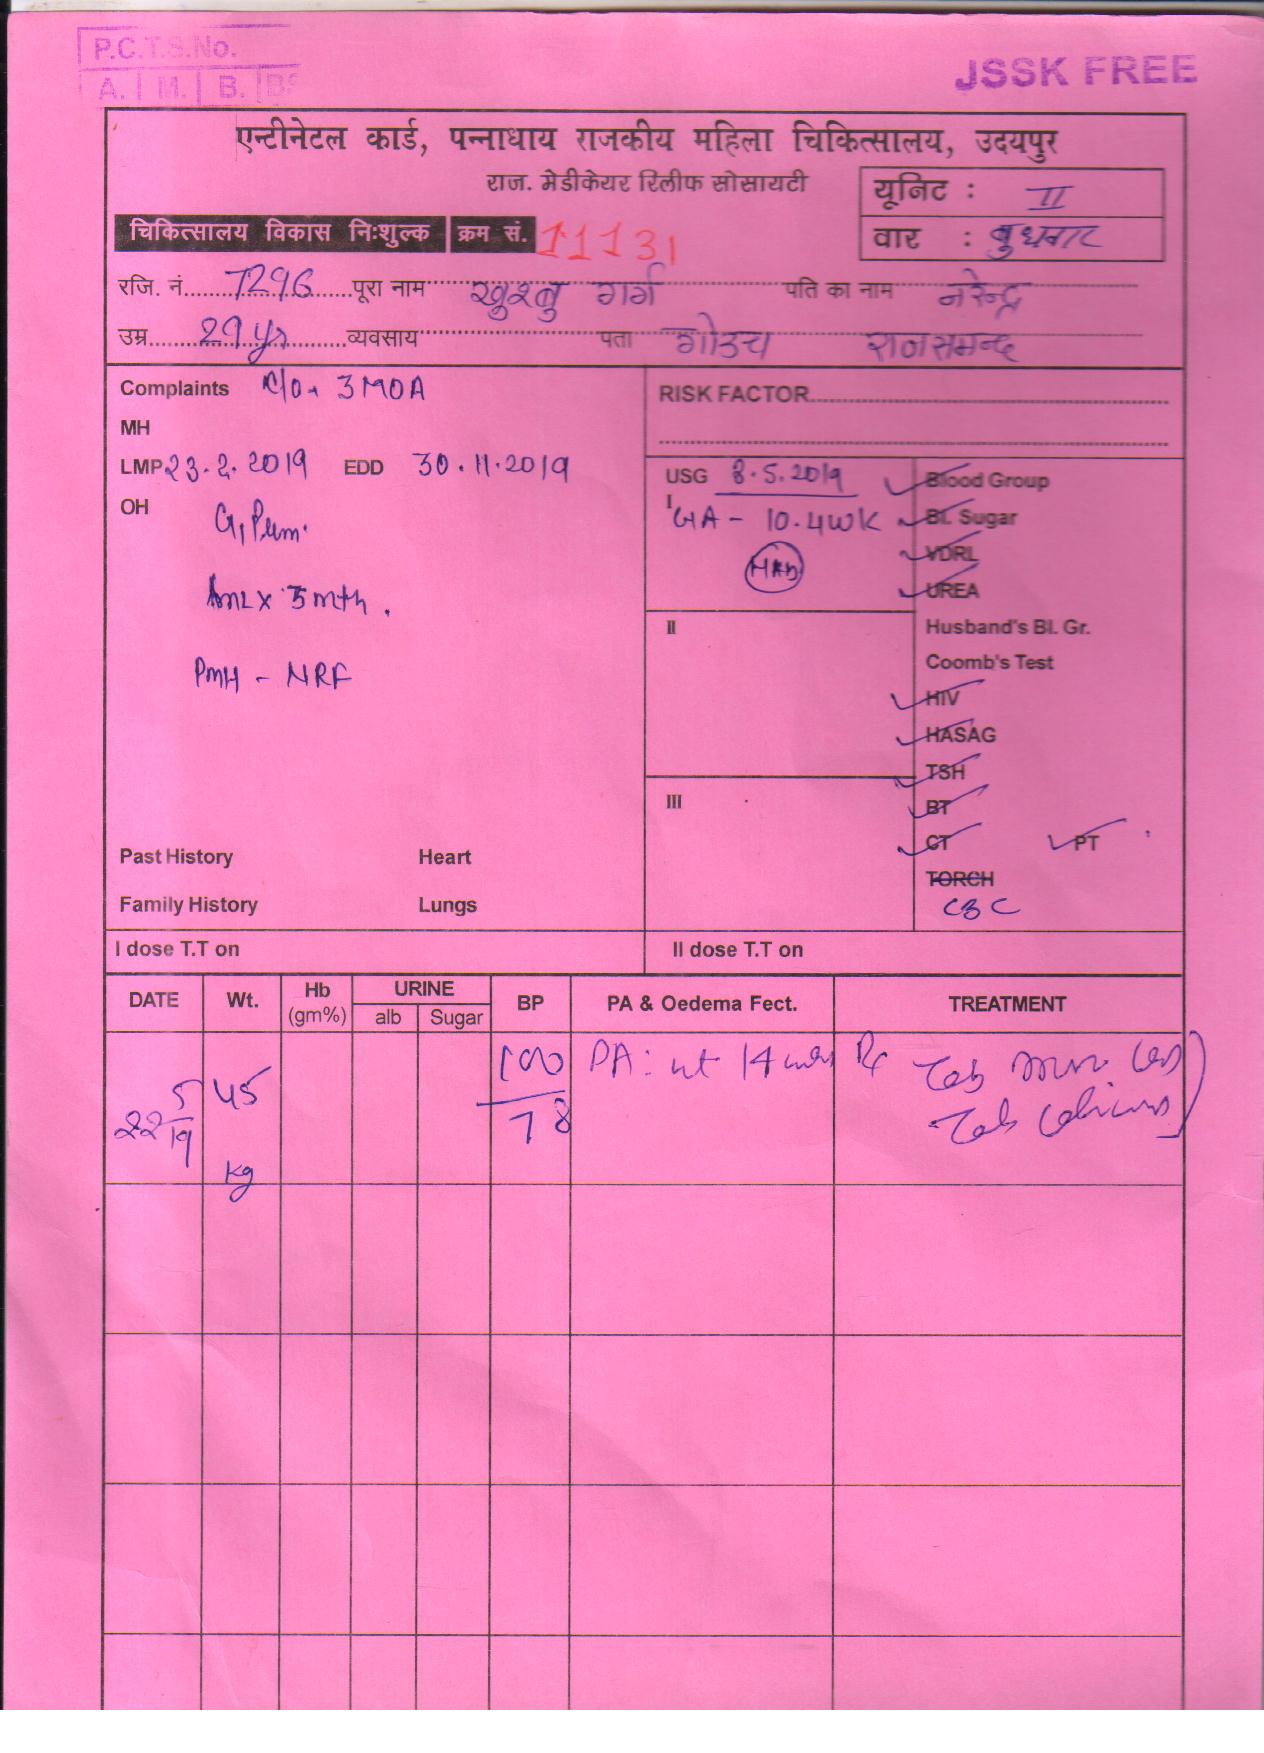 P.C.T.S.No.
A. M. B.
JSSK FREE
एन्टीनेटल कार्ड, पन्नाधाय राजकीय महिला चिकित्सालय, उदयपुर
राज. मेडीकेयर रिलीफ सोसायटी
यूनिट : II
चिकित्सालय विकास निःशुल्क क्रम सं. 11131
वार : बुधवार
रजि. नं. 7296 पूरा नाम खुश्बु गर्ग पति का नाम नरेन्द्र
उम्र 29 yr व्यवसाय पता राजसमन्द
Complaints c/o 3 MOA
RISK FACTOR
MH
LMP 23.2.2019 EDD 30.11.2019
USG 8.5.2019
Blood Group
OH
I
GA - 10.4wk
Bl. Sugar
VDRL
UREA
x 3 mth.
II
Husband's Bl. Gr.
Coomb's Test
PMH - NRF
HIV
HASAG
TSH
III
BT
CT PT
Past History Heart
TORCH
Family History Lungs
CBC
I dose T.T on II dose T.T on
DATE Wt. Hb (gm%) URINE BP PA & Oedema Fect. TREATMENT
alb Sugar
22/5/19 45 kg 100/78 PA: ut 14 wks Rx Tab
Tab